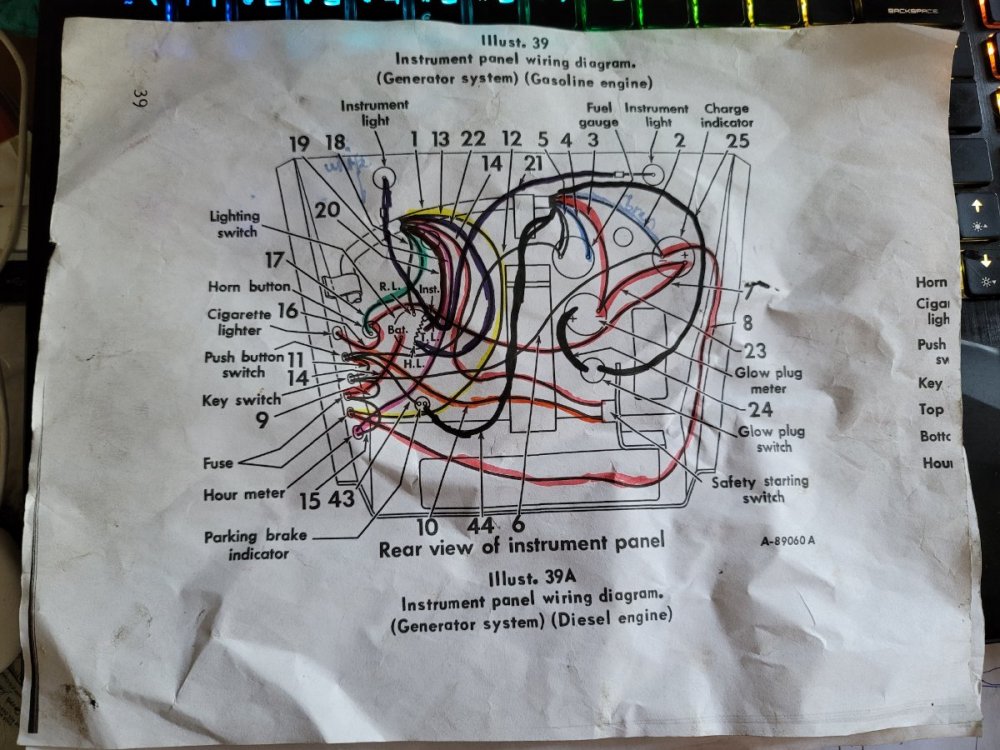 BACKSPACE
39
Illust. 39
Instrument panel wiring diagram.
(Generator system) (Gasoline engine)
Instrument
light
Fuel
gauge
Instrument
light
Charge
indicator
19 18 1 13 22 12 5 4 3 2 25
14 21
20
Lighting
switch
17
Horn button
16
Cigarette
lighter
Push button
switch
11
14
Key switch
9
Fuse
Hour meter
15 43
Parking brake
indicator
R.L.
Inst.
Bat.
T.L.
H.L.
7
8
23
Glow plug
meter
24
Glow plug
switch
Safety starting
switch
10 44 6
Rear view of instrument panel
A-89060 A
Illust. 39A
Instrument panel wiring diagram.
(Generator system) (Diesel engine)
Horn
Cigar
ligh
Push
sw
Key
Top
Botto
Hour